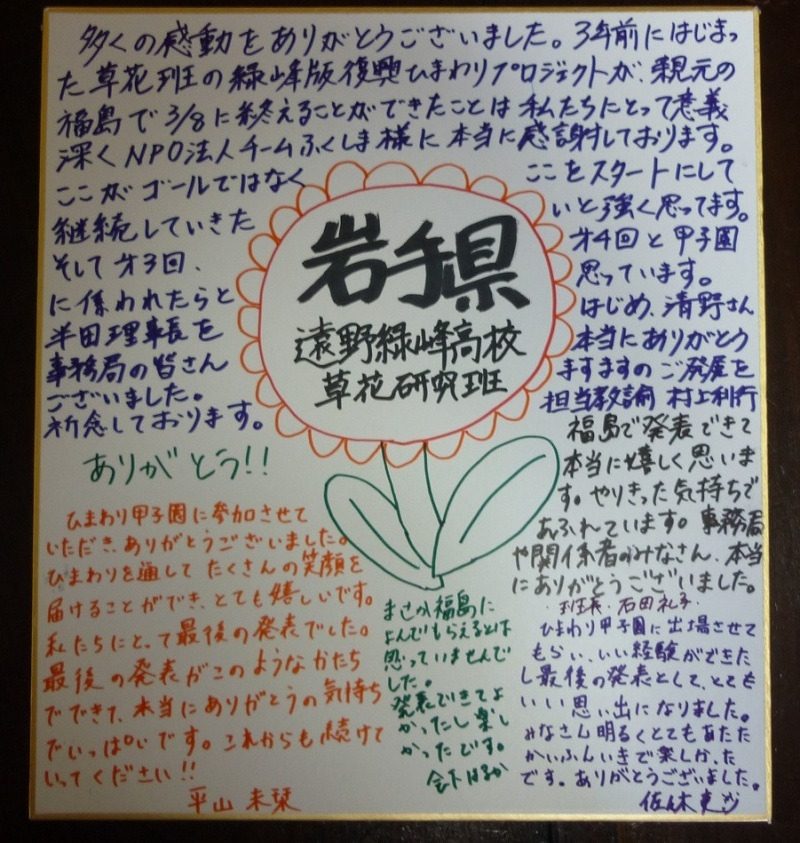 多くの感動をありがとうございました。3年前にはじまっ
た草花班の緑峰版復興ひまわりプロジェクトが、親元の
福島で3/8に終えることができたことは私たちにとって意義
深くNPO法人チームふくしま様に本当に感謝しております。
ここがゴールではなく ここをスタートにして
継続していきた いと強く思ってます。
そして才3回、 才4回と甲子園
に係われたらと 思っています。
半田理事長を はじめ、清野さん
事務局の皆さん 本当にありがとう
ございました。 ますますのご発展を
祈念しております。 担当教諭 村上利行
岩手県
遠野緑峰高校
草花研究班
ありがとう!!
福島で発表できて
本当に嬉しく思いま
す。やりきった気持ちで
あふれています。事務局
や関係者のみなさん、本当
にありがとうございました。
班長・石田礼子
ひまわり甲子園に参加させて
いただき、ありがとうございました。
ひまわりを通してたくさんの笑顔を
届けることができ、とても嬉しいです。
私たちにとって最後の発表でした。
最後の発表がこのようなかたち
でできて、本当にありがとうの気持ち
でいっぱいです。これからも続けて
いってください!!
平山 未栞
まさか福島に
よんでもらえるとは
思っていませんで
した。
発表できてよ
かったし楽し
かったです。
はるか
ひまわり甲子園に出場させて
もらい、いい経験ができた
し最後の発表として、とても
いい思い出になりました。
みなさん明るくとてもあたた
かいふんいきで楽しかった
です。ありがとうございました。
佐々木